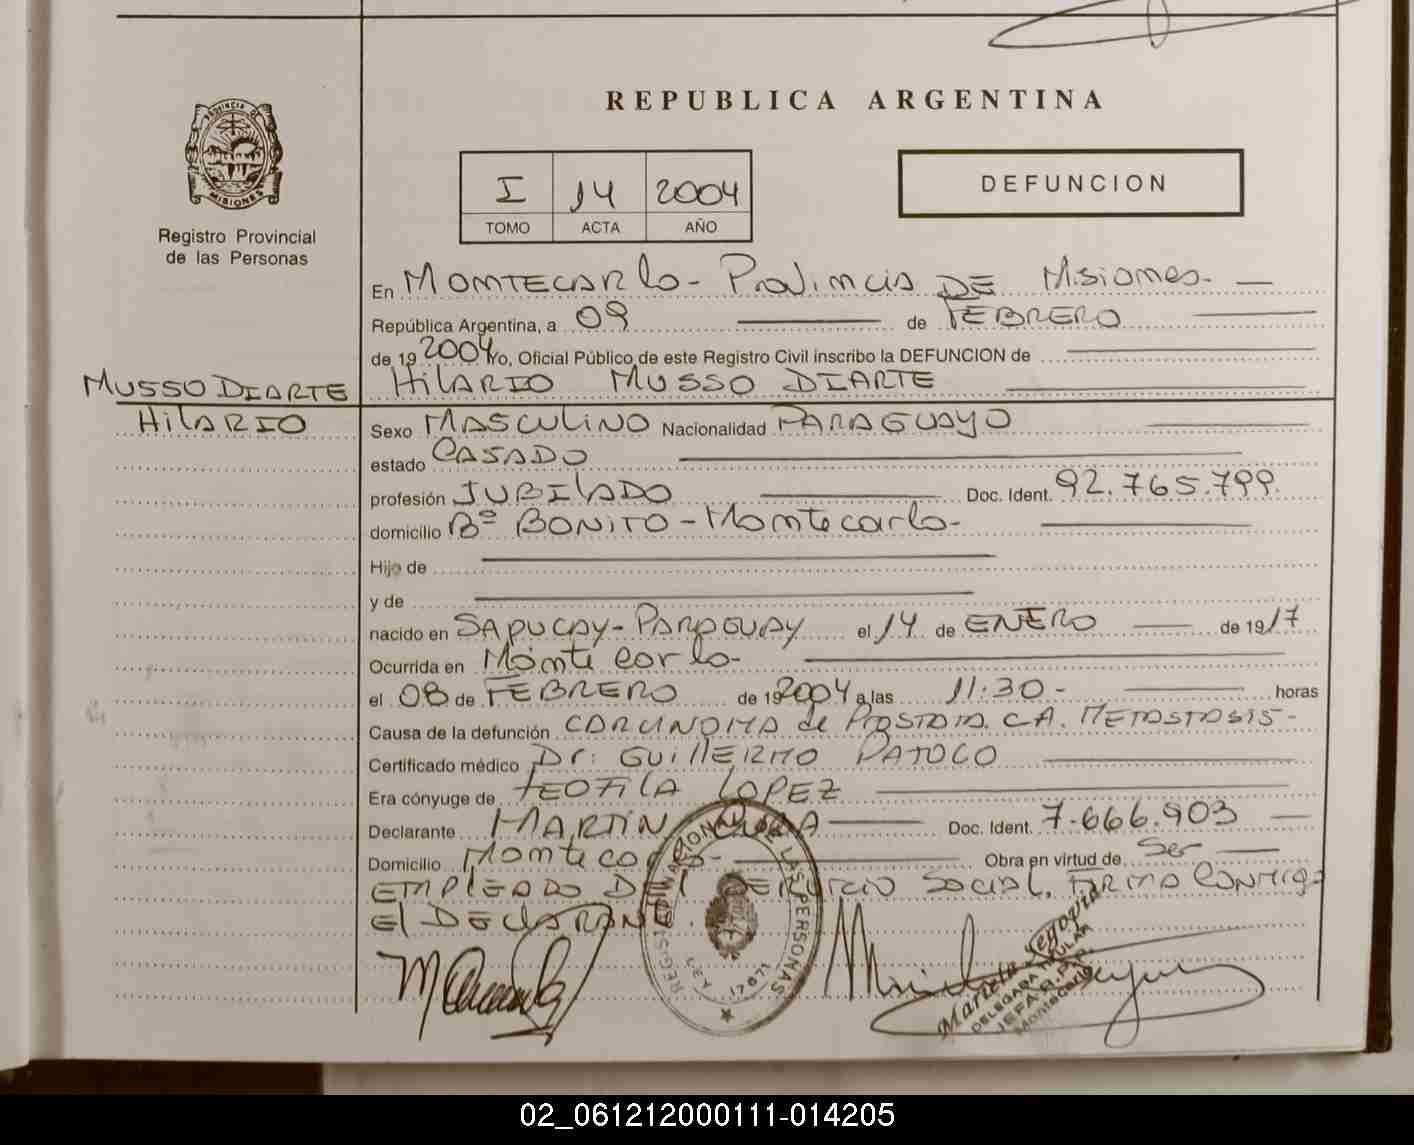 REPUBLICA ARGENTINA
PROVINCIA DE MISIONES
Registro Provincial
de las Personas
I 14 2004
TOMO ACTA AÑO
DEFUNCION
En Montecarlo - Provincia DE Misiones.
República Argentina, a 09 de FEBRERO
de 19 2004 Yo, Oficial Público de este Registro Civil inscribo la DEFUNCION de
MUSSO DIARTE
HILARIO
HILARIO MUSSO DIARTE
Sexo MASCULINO Nacionalidad PARAGUAYO
estado CASADO
profesión JUBILADO Doc. Ident. 92.765.799.
domicilio Bº BONITO - Montecarlo -
Hijo de
y de
nacido en SAPUCAY - PARAGUAY el 14 de ENERO de 1917
Ocurrida en Montecarlo -
el 08 de FEBRERO de 19 2004 a las 11:30 - horas
Causa de la defunción CARCINOMA de PROSTATA. CA. METASTASIS -
Certificado médico Dr: GUILLERMO
Era cónyuge de TEOFILA LOPEZ
Declarante MARTIN Doc. Ident. 7.666.903
Domicilio Montecarlo - Obra en virtud de Ser
EMPLEADO DEL SERVICIO SOCIAL. FIRMA CONMIGO
El DECLARANTE.
REGISTRO NACIONAL DE LAS PERSONAS
LEY 17671
Segovia
DELEGADA TITULAR
JEFA R.P.P.
Montecarlo
02_061212000111-014205